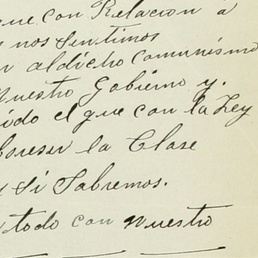 que con Relacion a
nos sentimos
al dicho comunismo
Nuestro Gobierno y.
el que con la Ley
la Clase
si Sabremos.
todo con Nuestro